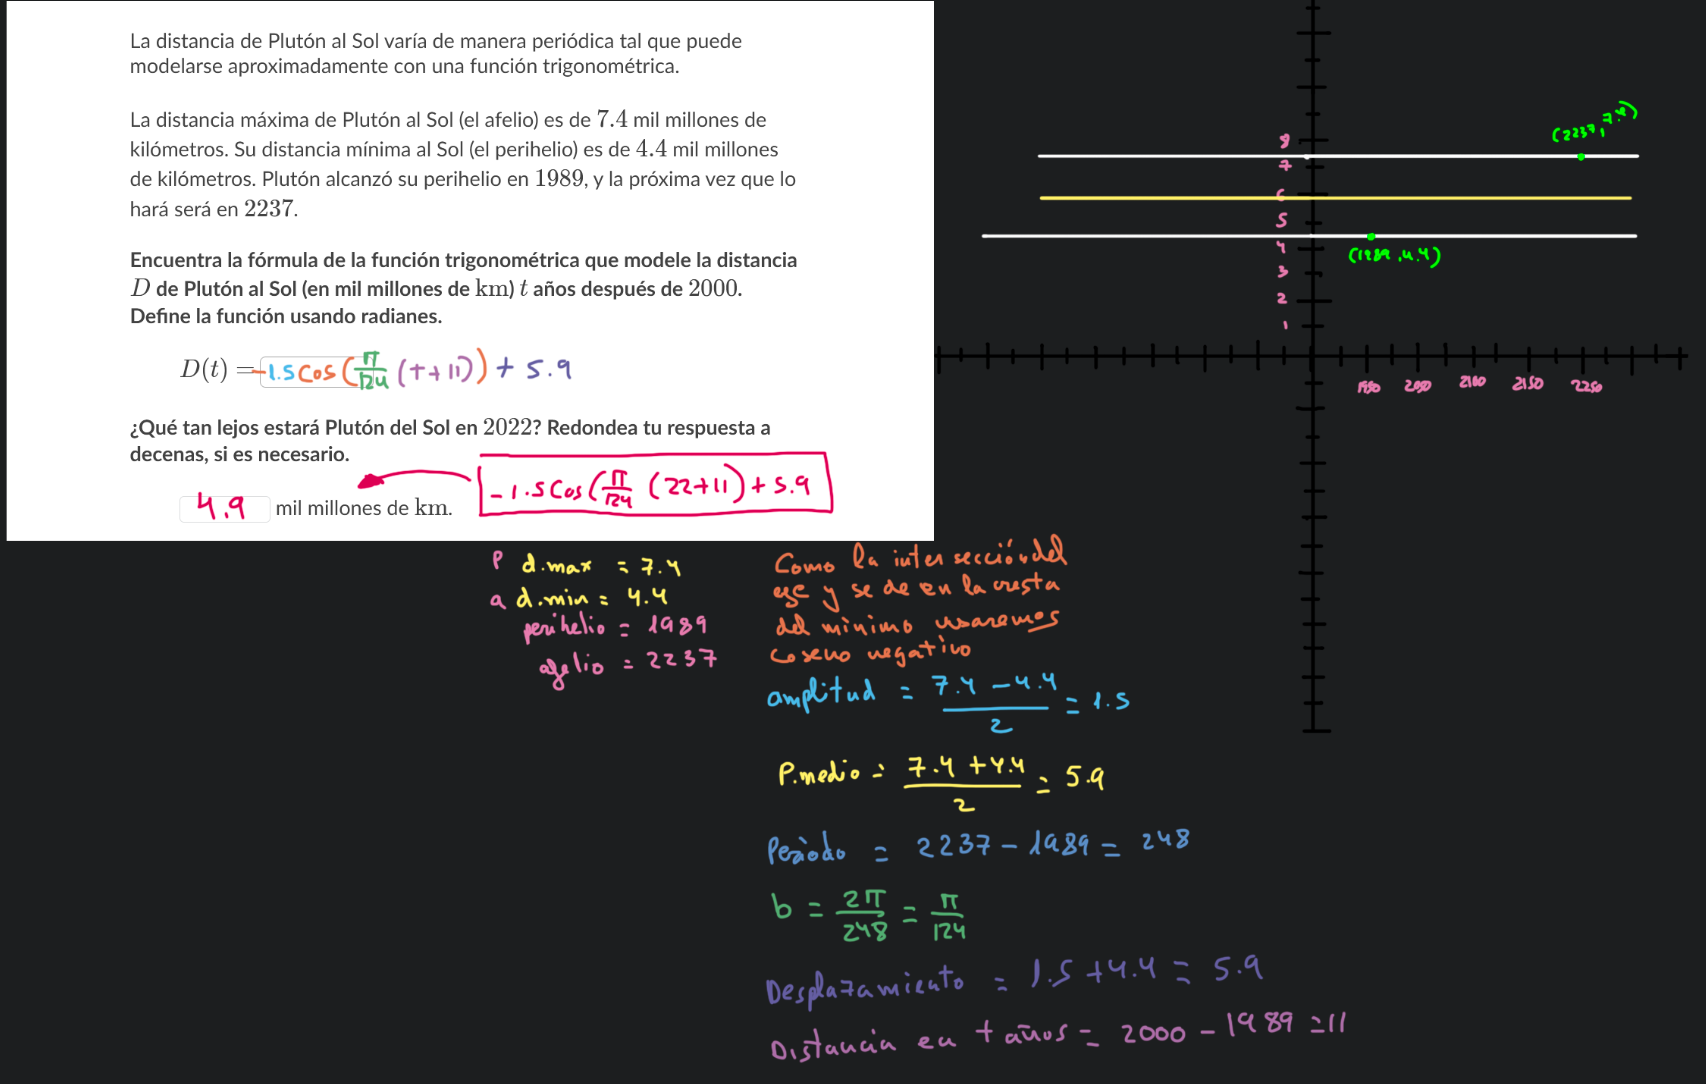 La distancia de Plutón al Sol varía de manera periódica tal que puede
modelarse aproximadamente con una función trigonométrica.
La distancia máxima de Plutón al Sol (el afelio) es de 7.4 mil millones de
kilómetros. Su distancia mínima al Sol (el perihelio) es de 4.4 mil millones
de kilómetros. Plutón alcanzó su perihelio en 1989, y la próxima vez que lo
hará será en 2237.
Encuentra la fórmula de la función trigonométrica que modele la distancia
D de Plutón al Sol (en mil millones de km) t años después de 2000.
Define la función usando radianes.
D(t) = -1.5 cos (π/124 (t+11)) + 5.9
¿Qué tan lejos estará Plutón del Sol en 2022? Redondea tu respuesta a
decenas, si es necesario.
-1.5 Cos (π/124 (22+11) + 5.9
4.9 mil millones de km.
(2237, 7.4)
8
7
6
5
4
(1989, 4.4)
3
2
1
1950 2050 2100 2150 2250
P d.max = 7.4
a d.min = 4.4
perihelio = 1989
afelio = 2237
Como la intersección del
eje y se de en la cresta
del minimo usaremos
coseno negativo
amplitud = 7.4 - 4.4 / 2 = 1.5
P.medio = 7.4 + 4.4 / 2 = 5.9
Periodo = 2237 - 1989 = 248
b = 2π/248 = π/124
Desplazamiento = 1.5 + 4.4 = 5.9
Distancia en t años = 2000 - 1989 = 11